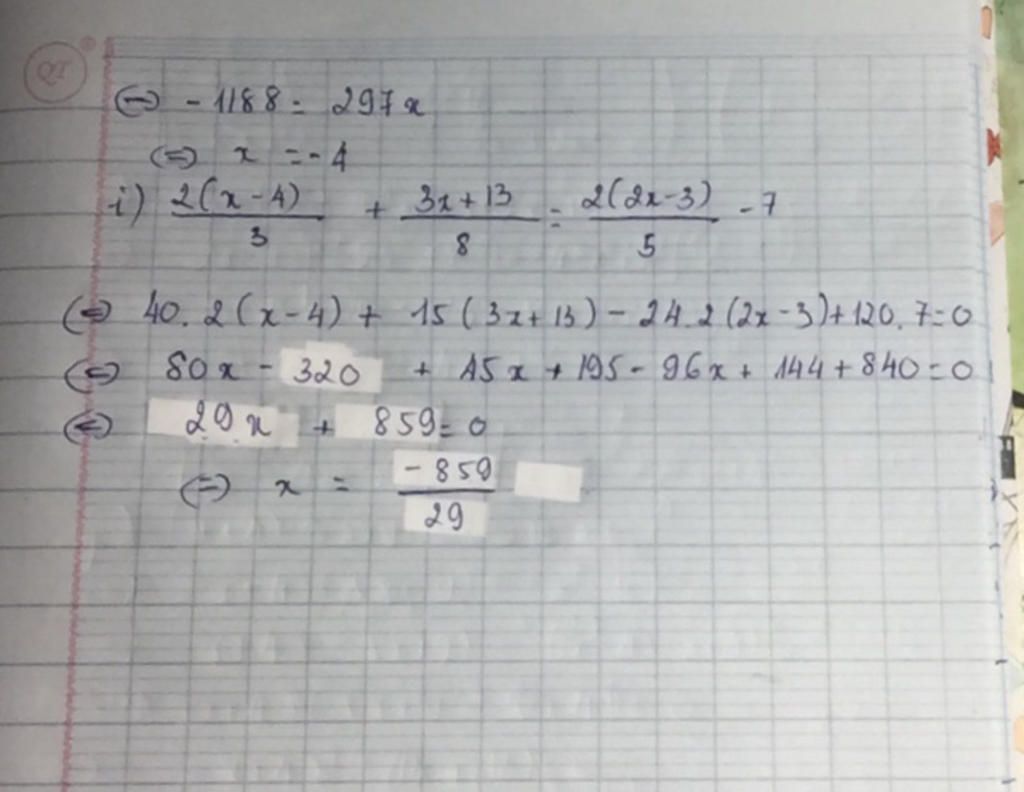 QT
⇔ - 1188 = 297x
⇔ x = - 4
i) 2(x - 4)/3 + 3x + 13/8 = 2(2x - 3)/5 - 7
⇔ 40. 2(x - 4) + 15(3x + 13) - 24. 2(2x - 3) + 120. 7 = 0
⇔ 80x - 320 + 45x + 195 - 96x + 144 + 840 = 0
⇔ 29x + 859 = 0
⇔ x = -859/29